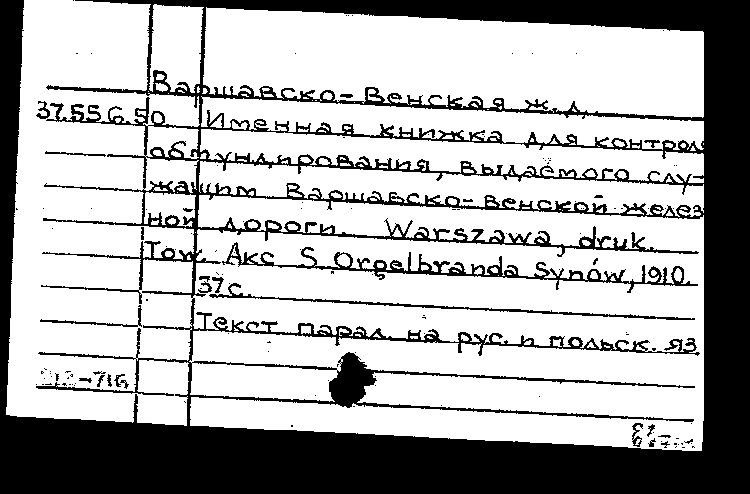 Варшавско-Венская ж.д.
37.556.50 Именная книжка для контроля
обмундирования, выдаемого слу-
жащим Варшавско-Венской желез
ной дороги. Warszawa, druk.
Tow. Akc S Orgelbranda Synów, 1910.
37с.
Текст парал. на рус. и польск. яз.
-716